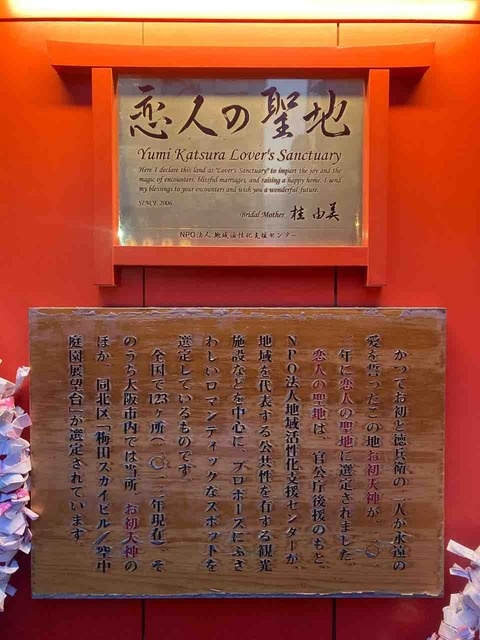 恋人の聖地
Yumi Katsura Lover's Sanctuary
Here I declare this land as "Lover's Sanctuary" to impart the joy and the
magic of encounters, blissful marriages, and raising a happy home. I send
my blessings to your encounters and wish you a wonderful future.
SINCE 2006
Bridal Mother 桂 由美
NPO法人 地域活性化支援センター
かつてお初と徳兵衛の二人が永遠の
愛を誓ったこの地お初天神が、二〇一
二年に恋人の聖地に選定されました。
恋人の聖地は、官公庁後援のもと、
NPO法人地域活性化支援センターが、
地域を代表する公共性を有する観光
施設などを中心に、プロポーズにふさ
わしいロマンティックなスポットを
選定しているものです。
全国で123ヶ所(二〇一二年現在)、そ
のうち大阪市内では当所、お初天神の
ほか、同北区「梅田スカイビル/空中
庭園展望台」が選定されています。